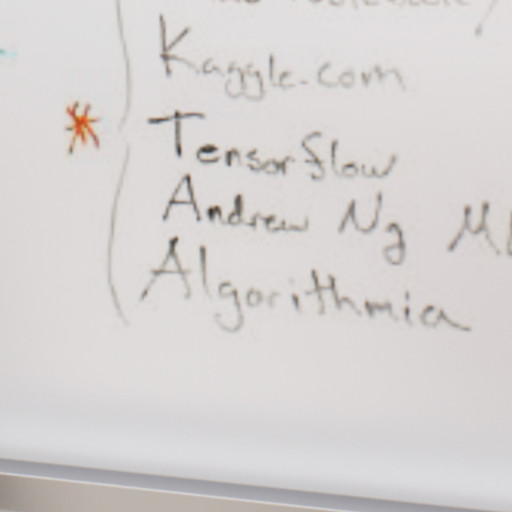 Kaggle.com
Tensorflow
Andrew Ng ML
Algorithmia